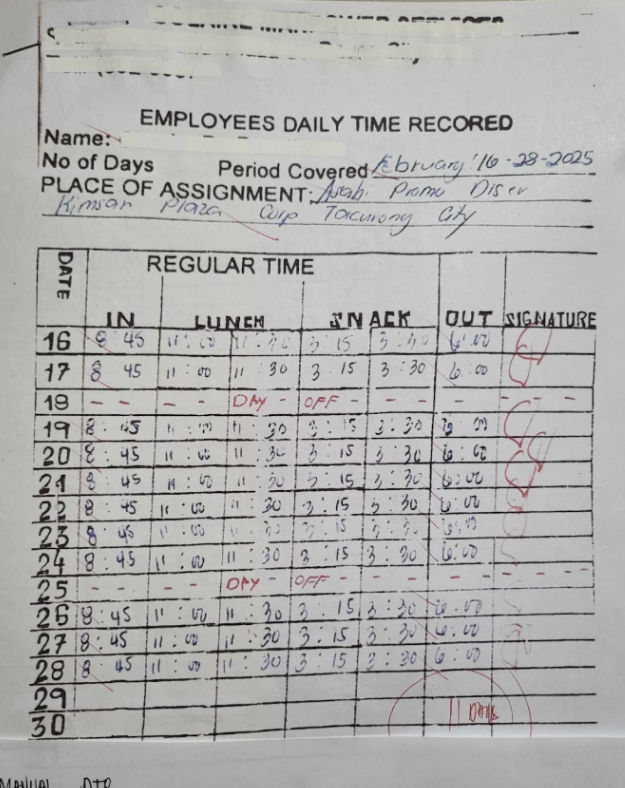 EMPLOYEES DAILY TIME RECORED
Name:
No of Days Period Covered February 16-28-2025
PLACE OF ASSIGNMENT: Asahi Promo Diser
Kimsan Plaza Corp Tacurong City
DATE REGULAR TIME
IN LUNCH SNACK OUT SIGNATURE
16 8:45 11:00 11:30 3:15 3:30 6:00
17 8 45 11:00 11:30 3:15 3:30 6:00
18 - - - - DAY - OFF - - - - - - -
19 8:45 11:00 11:30 3:15 3:30 6:00
20 8:45 11:00 11:30 3:15 3:30 6:00
21 8:45 11:00 11:30 3:15 3:30 6:00
22 8:45 11:00 11:30 3:15 3:30 6:00
23 8:45 11:00 11:30 3:15 3:30 6:00
24 8:45 11:00 11:30 3:15 3:30 6:00
25 - - - - DAY - OFF - - - - - - -
26 8:45 11:00 11:30 3:15 3:30 6:00
27 8:45 11:00 11:30 3:15 3:30 6:00
28 8:45 11:00 11:30 3:15 3:30 6:00
29
30 11 Days
MANUAL DTR